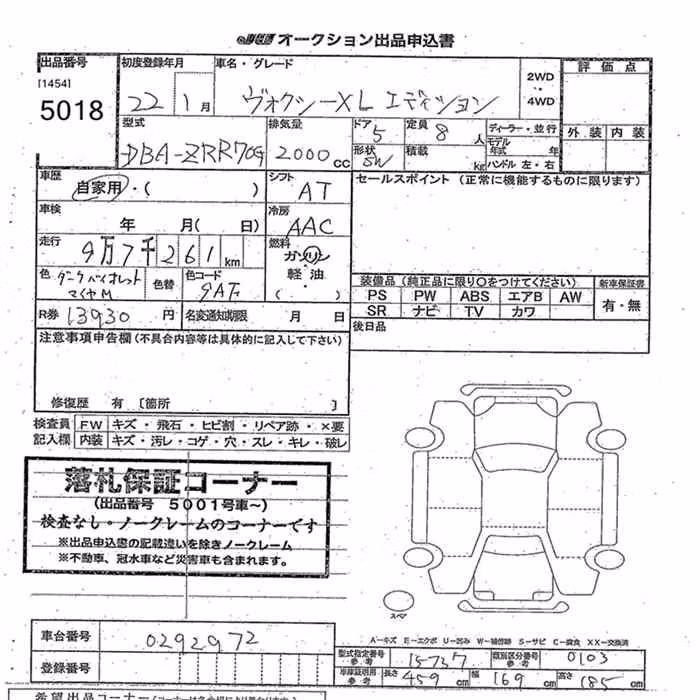 オークション出品申込書
出品番号 初度登録年月 車名・グレード 評価点
[1454] 2WD
5018 22 1月 ヴォクシーXLエディション ・
4WD
型式 排気量 ドア 5 定員 8人 ディーラー・並行 外装 内装
DBA-ZRR70G 2000cc 形状 SW 積載 kg モデル年式 年
ハンドル 左・右
車歴 自家用・( ) シフト AT セールスポイント (正常に機能するものに限ります)
車検 年 月( 日) 冷房 AAC
走行 9万7千261km 燃料 ガソリン
軽・油
( )
色 ダークバイオレット 色替 色コード 9AF 装備品 (純正品に限り○をつけてください) 新車保証書
マイカM PS PW ABS エアB AW 有・無
R券 13930円 名変通知期限 月 日 SR ナビ TV カワ
後日品
注意事項申告欄(不具合内容等は具体的に記入して下さい)
修復歴 有 [箇所 ]
検査員 FW キズ・飛石・ヒビ割・リペア跡・×要
記入欄 内装 キズ・汚レ・コゲ・穴・スレ・キレ・破レ
落札保証コーナー
(出品番号 5001号車~)
検査なし・ノークレームのコーナーです
※出品申込書の記載違いを除きノークレーム
※不動車、冠水車など災害車も含まれます。
スペア
A-キズ E-エクボ U-凹み W-補修跡 S-サビ C-腐食 XX-交換済
車台番号 0292972
登録番号
型式指定番号 参考 15737 類別区分番号 参考 0103
車庫証明用 参考 長さ 459cm 幅 169cm 高さ 185cm
希望出品コーナー